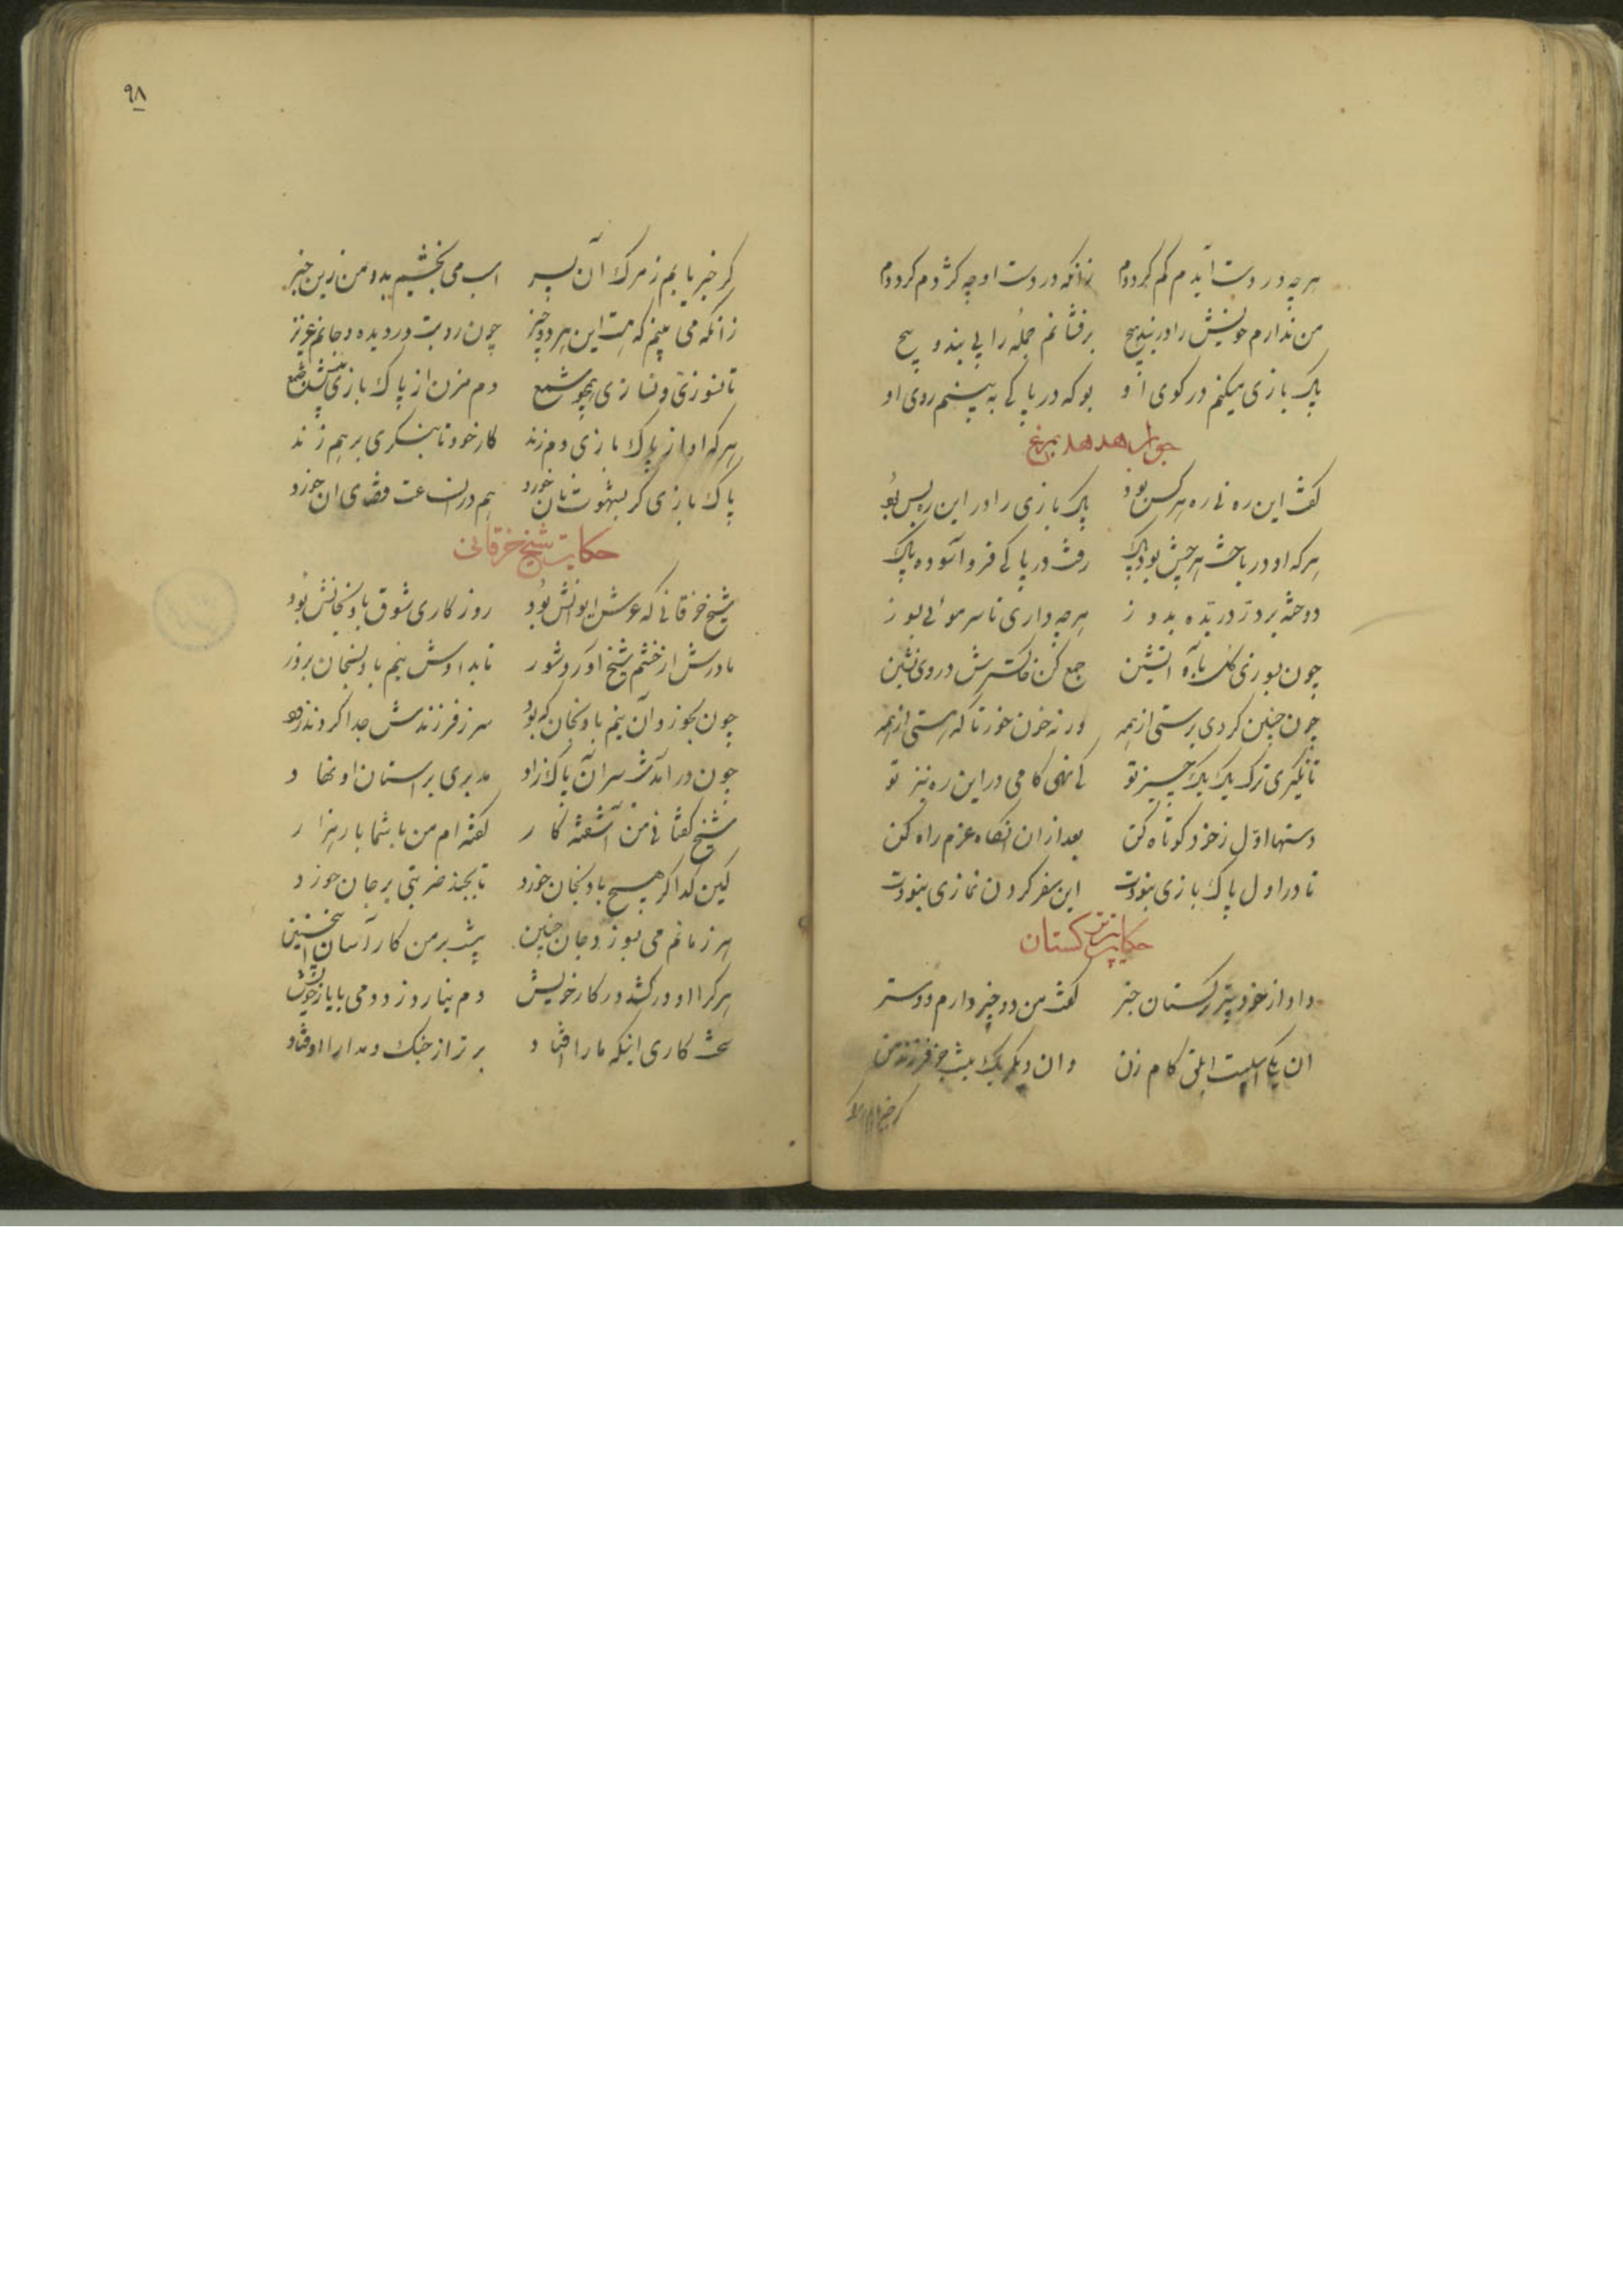 هرچه در دست آیدم گم گرددم    زانکه در دست اوچه کژدم گرددم
من ندارم خویش را در بند هیچ    برفشانم جمله را بی بند و پیچ
پاک بازی میکنم در کوی او    بوکه در پاکی به بینم روی او
جواب هدهد بمرغ
گفت این ره نی ره هر کس بود    پاک بازی را در این ره بس بود
هرکه او درباخت هرچش بود پاک    رفت در پاکی فرو آسوده پاک
دوخته بر در دریده بدوز    هرچه داری تا سر موئی بسوز
چون بسوزی کل بآه آتشین    جمع کن خاکسترش در وی نشین
چون چنین کردی برستی از همه    ورنه خون خور تا که هستی از همه
تا نگیری ترک یک یک چیز تو    کی نهی کامی در این ره نیز تو
دستها اوّل ز خود کوتاه کن    بعد از ان انگاه عزم راه کن
تا در اول پاک بازی نبودت    این سفر کردن نمازی نبودت
حکایت پیر ترکستان
داد از خود پیر ترکستان خبر    گفت من دو چیز دارم دوستر
ان یکی اسپست ابلق کام زن    وان دیگر یک نیست جز فرزند من
٩٨
کر خبر یابم ز مرک آن پسر    اسب می بخشیم بدو من زین خبر
زانکه می بینم که هست این هر دو چیز    چون دو بت در دیده و جانم عزیز
تا نسوزی و نسازی همچو شمع    دم مزن از پاک بازی پیش جمع
هرکه او از پاک بازی دم زند    کار خود تا بنگری برهم زند
پاک بازی کر بشهوت نان خورد    هم در انساعت قفای ان خورد
حکایت شیخ خرقانی
شیخ خرقانی که عرش ایوانش بود    روزکاری شوق بادنجانش بود
مادرش از خشم شیخ آورد شور    تا بدادش نیم بادنجان بزور
چون بخورد آن نیم بادنجان که بود    سر ز فرزندش جدا کردند زود
چون در آمد شب سر آن پاک زاد    مدبری بر استان او نهاد
شیخ گفتا نی من آشفته کار    گفته ام من با شما بار هزار
کین گدا کر هیچ بادنجان خورد    تا بجنبد ضربتی بر جان خورد
هر زمانم می بسوزد جان چنین    نیست بر من کار آسان اینچنین
هرکرا او درکشد در کار خویش    دم نیارد زد دمی با یار خویش
سخت کاری اینکه ما را افتاد    برتر از جنک و مدارا اوفتاد